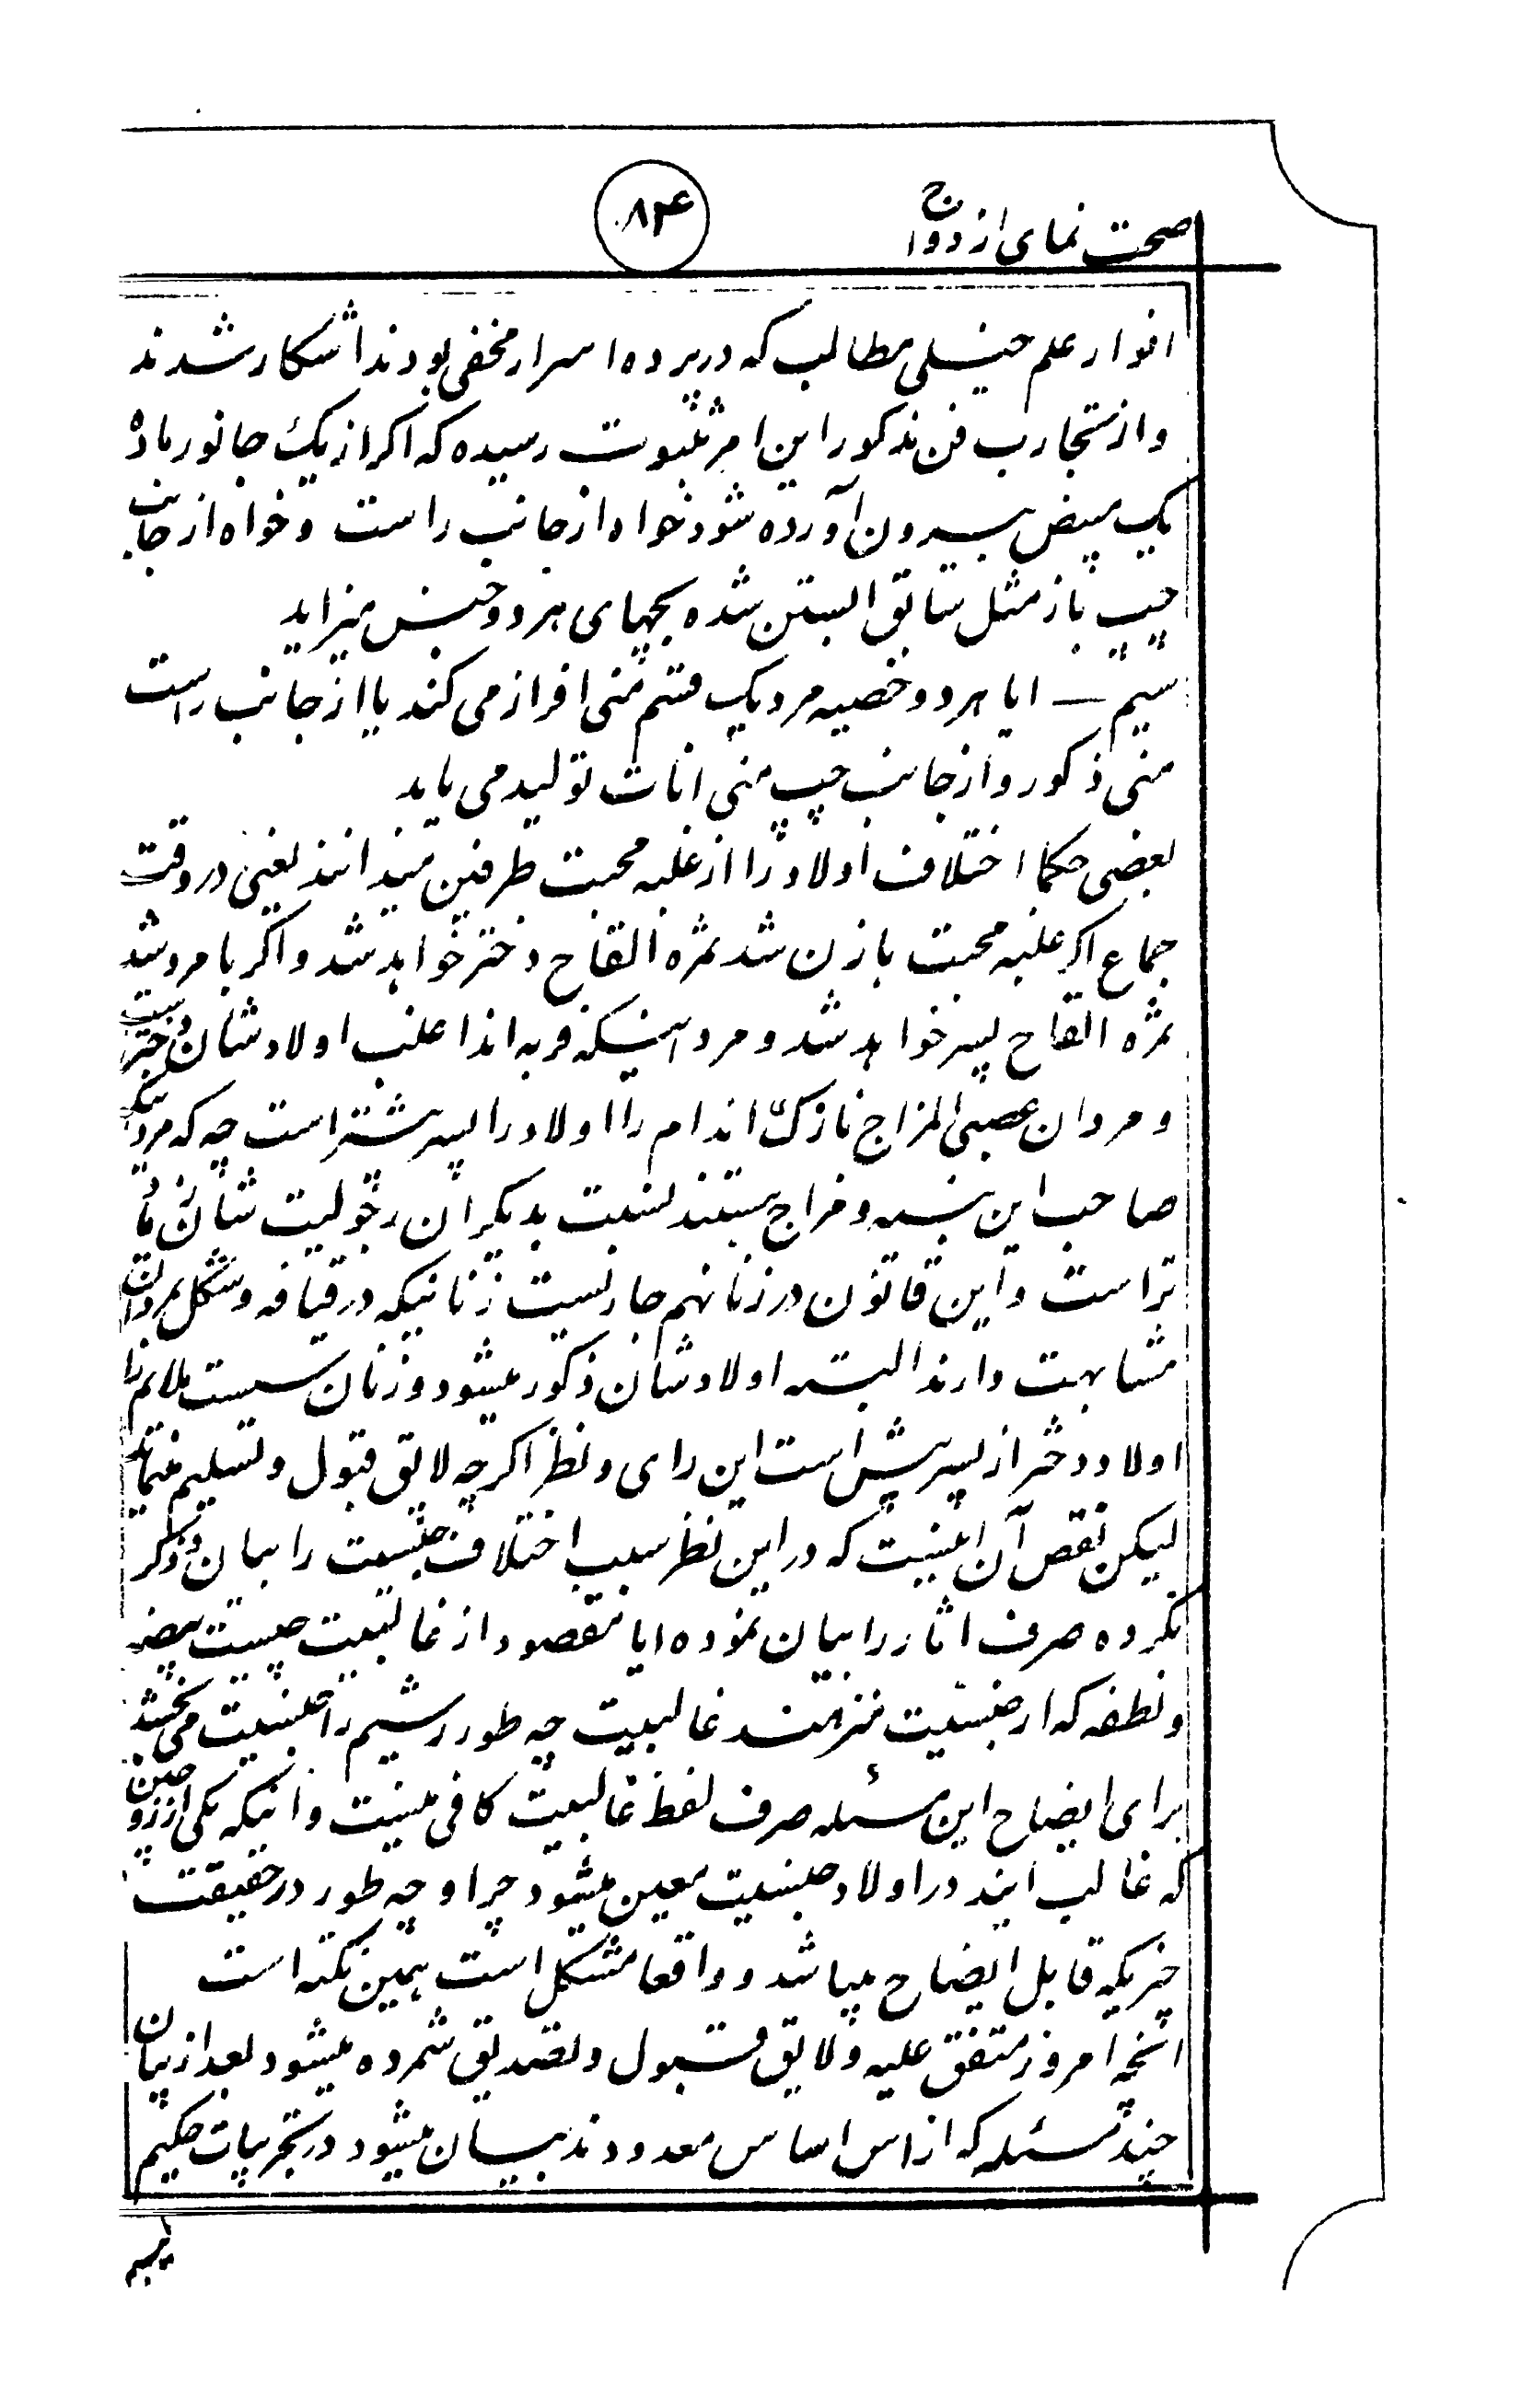 صحت نمای ازدواج
۸۴
انوار علم خیلی مطالب که در پرده اسرار مخفی بودند اشکار شدند
و از تجارب فن مذکور این امر بثبوت رسیده که اکر از یک جانور ماده
یک بیض بیرون آورده شود خواه از جانب راست و خواه از جانب
چپ باز مثل سابق ابستن شده بچهای هر دو جنس میزاید
سیم — ایا هر دو خصیه مرد یک قسم منی افراز می کند یا از جانب راست
منی ذکور و از جانب چپ منی اناث تولید می یابد
بعضی حکما اختلاف اولاد را از غلبه محبت طرفین میدانند یعنی در وقت
جماع اکر غلبه محبت با زن شد ثمره القاح دختر خواهد شد و اکر با مرد شد
ثمره القاح پسر خواهد شد و مرد انیکه فربه اند اغلب اولاد شان دختر است
و مردان عصبی المزاج نازک اندام را اولاد پسر بیشتر است چه که مردانیکه
صاحب این بنیه و مزاج هستند نسبت بدیکران رجولیت شان
تر است و این قانون در زنانهم جاریست زنانیکه در قیافه و شکل بمردان
مشابهت دارند البته اولاد شان ذکور میشود و زنان سست ملایم را
اولاد دختر از پسر بیش است این رای و نظر اکرچه لایق قبول و تسلیم مینماید
لیکن نقص آن اینست که در این نظر سبب اختلاف جنسیت را بیان و ذکر
نکرده صرف اثار را بیان نموده ایا مقصود از غالبیت چیست بیضه
و نطفه که از جنسیت منزهند غالبیت چه طور رشیم را جنسیت می بخشد
برای ایضاح این مسئله صرف لفظ غالبیت کافی نیست و انیکه یکی از زوجین
که غالب ایند در اولاد جنسیت معین میشود چرا و چه طور در حقیقت
چیزیکه قابل ایضاح میباشد و واقعا مشکل است همین نکته است
انچه امروز متفق علیه و لایق قبول و تصدیق شمرده میشود بعد از بیان
چند مسئله که از اس اساس معدودند بیان میشود در تجربیات حکیم